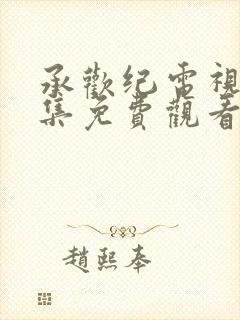 承歡纪電視
集免費觀看
趙熙奉